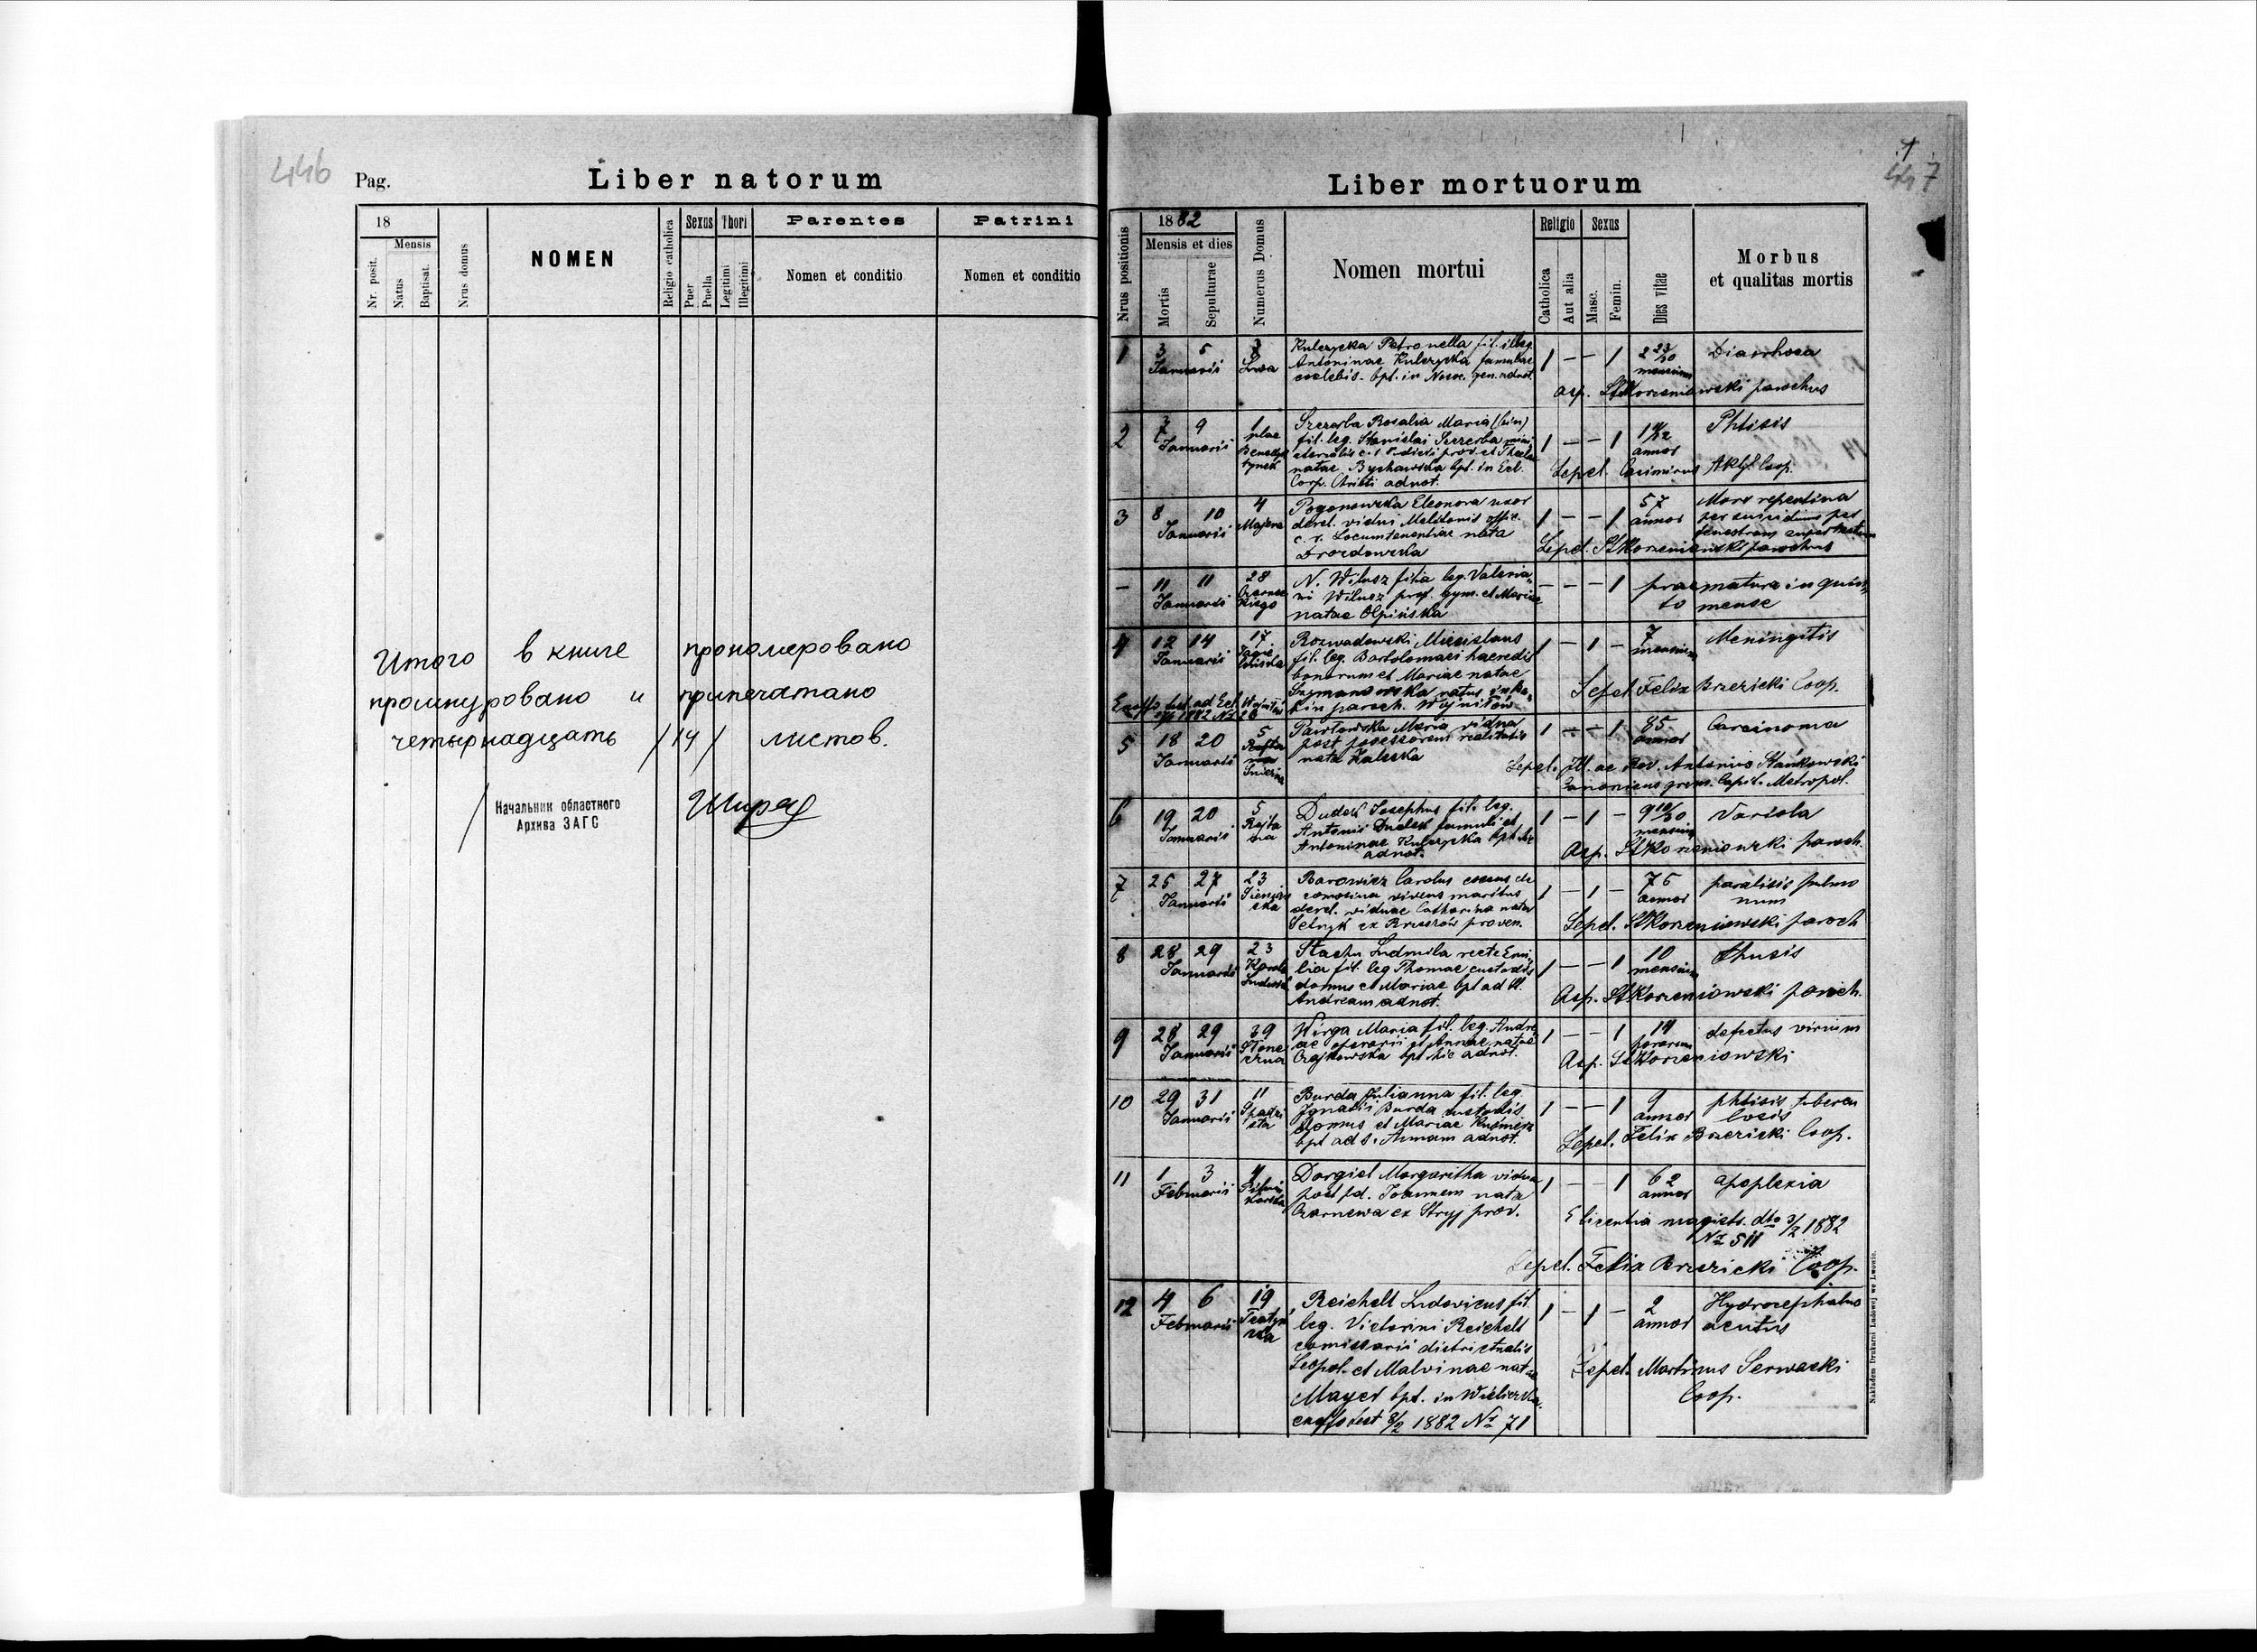 446
Pag.
Liber natorum
18
Mensis
Nr. posit.
Natus
Baptisat.
Nrus domus
NOMEN
Religio catholica
Sexus
Puer
Puella
Thori
Legitimi
Illegitimi
Parentes
Nomen et conditio
Patrini
Nomen et conditio
Итого в книге прономеровано
прошнуровано и припечатано
четырнадцать /14/ листов.
Начальник областного
Архива ЗАГС
447
Liber mortuorum
Nrus positionis
1882
Mensis et dies
Mortis
Sepulturae
Numerus Domus
Nomen mortui
Religio
Catholica
Aut alia
Sexus
Masc.
Femin.
Dies vitae
Morbus
et qualitas mortis
1 3 5 Januarii
Kulczycka Petronella fil. illeg.
Antoninae Kulczycka famulae
coelebis. bpt. in
1 — — 1 2 23/30 mensium Diarrhoea
Asp. St Korzeniowski parochus
2 7 9 Januarii 1 plac
Szczerba Rosalia Maria (bin)
fil. leg. Stanislai Szczerba
natae Bychawska bpt. in Eccl.
Corp. Christi adnot.
1 — — 1 annor Phtisis
Sepel. Casimirus Coop.
3 8 10 Januarii 4 Majera
Pogonowska Eleonora uxor
derel. vidui Melitonis offic.
c. r. Locumtenentiae nata
Drozdowska
1 — — 1 57 annor Mors repentina
per suicidium per
fenestram
Sepel. St Korzeniowski parochus
— 11 11 Januarii 28
N. Witusz filia leg. Valeria-
ni Witusz prof. gym. et Mariae
natae Olpińska
— — — 1 praemature in quin-
to mense
4 12 14 Januarii 17
Rozwadowski Miecislaus
fil. leg. Bartolomaei haeredis
bonorum et Mariae natae
Szymanowska natus
in paroch. Wojniłów
1 — 1 — 7 mensium Meningitis
Sepel. Felix Brzezicki Coop.
5 18 20 Januarii 5
Pawłowska Maria vidua
post possessorem realitatis
nata Zaleska
1 — — 1 85 annor Carcinoma
Sepel. Ill. ac Rev. Antonius
Canonicus grem. Capit. Metropol.
6 19 20 Januarii 5 Rejta na
Dudek Josephus fil. leg.
Antonii Dudek famuli et
Antoninae Kulczycka bpt. hic
adnot.
1 — 1 — 9 10/30 mensium Variola
Asp. St Korzeniowski paroch.
7 25 27 Januarii 23
Barowicz Carolus
vivens maritus
derel. viduae Catharina nata
proven.
1 — 1 — 75 annor paralisis pulmo
num
Sepel. St Korzeniowski paroch
8 28 29 Januarii 23
Stachu Ludmila recte Emi-
lia fil. leg Thomae custodis
domus et Mariae bpt ad St.
Andream adnot.
1 — — 1 10 mensium thusis
Asp. St Korzeniowski paroch.
9 28 29 Januarii 39 Słone czna
Wirga Maria fil. leg. Andre
ae operarii et Annae natae
Czajkowska bpt hic adnot.
1 — — 1 14 horarum defectus virium
Asp. St Korzeniowski
10 29 31 Januarii 11
Burda Julianna fil. leg
Ignatii Burda custodis
domus et Mariae Kuśmierz
bpt ad S. Annam adnot.
1 — — 1 9 annor phtisis tubercu
losis
Sepel. Felix Brzezicki Coop.
11 1 3 Februarii 4
Dorgiel Margaritha vidua
post pd. Joannem nata
Czarnewa ex Stryj prov.
1 — — 1 62 annor apoplexia
E licentia magistr. dto 3/2 1882
No 511
Sepel. Felix Brzezicki Coop.
12 4 6 Februarii 19 Teatyń ska
Reichelt Ludovicus fil.
leg. Victorini Reichelt
comissarii districtualis
Leopol. et Malvinae natae
Mayer bpt. in Wieliczka.
test 8/2 1882 No 71
1 — 1 — 2 annor Hydrocephalus
acutus
Sepel. Martinus Serwacki
Coop.
Nakładem Drukarni Ludowej we Lwowie.